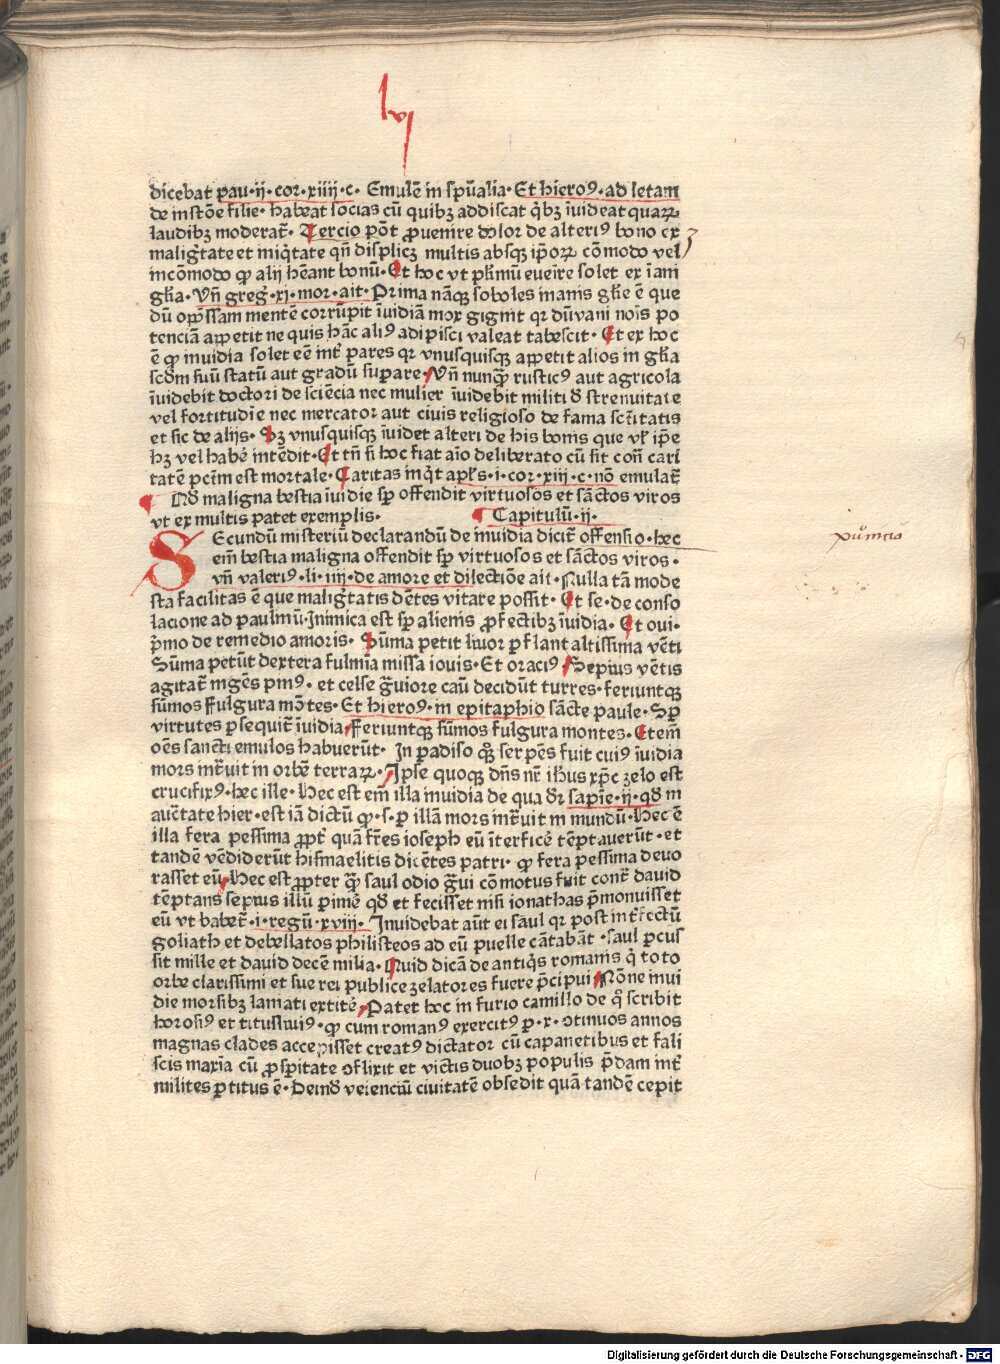 lvj
dicebat pau·ii·cor·xiiij·c· Emulē in spūalia· Et hieroꝰ·ad letam
de instōe filie· habeat socias cū quibꝫ addiscat q̄bꝫ īuideat quaꝝ
laudibꝫ moderat᷑· Tercio pōt ꝓuenire dolor de alteriꝰ bono ex
maliḡtate et miq̄tate qn̄ displicꝫ multis absqꝫ ip̄oꝝ cōmodo vel
incōmodo ꝙ alij hēant bonū· Et hoc vt plꝛimū eueīre solet ex īani
gl̄ia· Vn̄ greḡ·xj·mor·ait· Prima nāqꝫ soboles inanis gl̄ie ē que
dū opp̄ssam mentē corrūpit īuidiā mox gignit qꝛ dū vani noīs po
tenciā appetit ne quis hāc aliꝰ adipisci valeat tabescit· Et ex hoc
ē ꝙ inuidia solet eē int̄ pares qꝛ vnusquisqꝫ appetit alios in gl̄ia
scd̄m suū statū aut gradū supare· Vn̄ nunq̄ rusticꝰ aut agricola
īuidebit doctori de sciēcia nec mulier īuidebit militi d̄ strenuitate
vel fortitudīe nec mercator aut ciuis religioso de fama sctītatis
et sic de alijs· Sꝫ vnusquisqꝫ īuidet alteri de his bonis que vl̄ ip̄e
hꝫ vel habē intēdit· Et tn̄ si hoc fiat aīo deliberato cū sit coñ cari
tatē pctm̄ est mortale· Caritas inq̄t apl̄s·i·cor·xiij·c·nō emulat᷑
Qd̄ maligna bestia īuidie sp̄ offendit virtuosos et sāctos viros
vt ex multis patet exemplis· Capitulū·ij·
SEcundū misteriū declarandū de inuidia dicit᷑ offensio·hec
em̄ bestia maligna offendit sp̄ virtuosos et sāctos viros·
vn̄ valeriꝰ·li·iiij·de amore et dilectiōe ait· Nulla tā mode
sta facilitas ē que maliḡtatis dētes vitare possit· Et se·de conso
lacione ad paulinū·Inimica est sp̄ alienis ꝓfectibꝫ īuidia· Et oui·
p̄mo de remedio amoris· Sūma petit liuor ꝑflant altissima vēti
Sūma petūt dextera fulmīa missa iouis· Et oraciꝰ Sepius vētis
agitat᷑ īngēs pinꝰ· et celse ḡuiore casū decidūt turres· feriuntqꝫ
sūmos fulgura mōtes· Et hieroꝰ·in epitaphio sācte paule· Sp̄
virtutes ꝑsequit᷑ īuidia feriuntqꝫ sūmos fulgura montes· Etem̄
oēs sancti emulos habuerūt· In ꝑadiso qꝫ serpēs fuit cuiꝰ īuidia
mors int̄uit in orbē terraꝝ· Ipse quoqꝫ dn̄s nr̄ ih̄us xp̄c zelo est
crucifixꝰ·hec ille· Hec est em̄ illa inuidia de qua dr̄ sapīe·ij·qd̄ in
auctate hier·est iā dictū ꝙ·s·ꝑ illā mors int̄uit in mundū·Hec ē
illa fera pessima ꝓpt̄ quā fr̄es ioseph eū īterficē tēptauerūt·et
tandē vēdiderūt hismaelitis dicētes patri· ꝙ fera pessima deuo
rasset eū·Hec est ꝓpter q̄ saul odio ḡui cōmotus fuit cont̄ dauid
tēptans sepius illū ꝑimē qd̄ et fecisset nisi ionathas p̄monuisset
eū vt habet᷑·i·regū·xviij· Inuidebat aūt ei saul qꝛ post int̄fectū
goliath et debellatos philisteos ad eū puelle cātabāt ·saul ꝑcus
sit mille et dauid decē milia· Quid dicā de antiq̄s romanis q̄ toto
orbe clarissimi et sue rei publice zelatores fuere p̄cipui Nōne inui
die morsibꝫ lamati extitē· Patet hoc in furio camillo de q̄ scribit
horosiꝰ et titusliuiꝰ·ꝙ cum romanꝰ exercitꝰ ꝑ·x·ɔtinuos annos
magnas clades accepisset creatꝰ dictator cū capanetibus et fali
scis maxīa cū ꝓsperitate ɔflixit et victis duobꝫ populis p̄dam int̄
milites ꝑtitus ē· Deind̄ veienciū ciuitatē obsedit quā tandē cepit
Digitalisierung gefördert durch die Deutsche Forschungsgemeinschaft - DFG